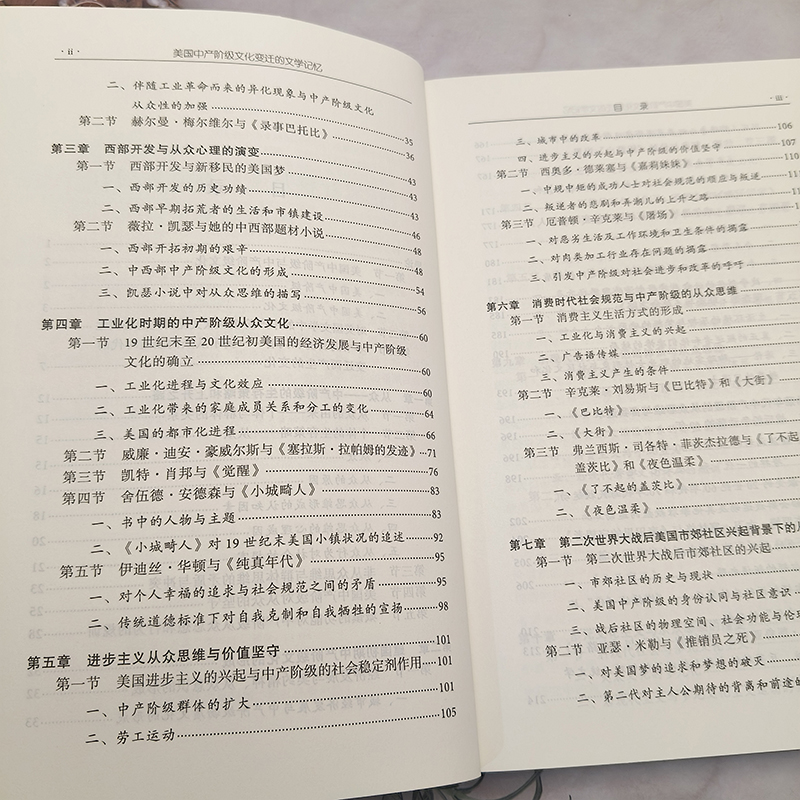 · ii ·
美国中产阶级文化变迁的文学记忆
二、伴随工业革命而来的异化现象与中产阶级文化
从众性的加强 35
第二节 赫尔曼·梅尔维尔与《录事巴托比》 36
第三章 西部开发与从众心理的演变
第一节 西部开发与新移民的美国梦 43
一、西部开发的历史功绩 43
二、西部早期拓荒者的生活和市镇建设 46
第二节 薇拉·凯瑟与她的中西部题材小说 48
一、西部开拓初期的艰辛 48
二、中西部中产阶级文化的形成 54
三、凯瑟小说中对从众思维的描写 56
第四章 工业化时期的中产阶级从众文化 60
第一节 19世纪末至20世纪初美国的经济发展与中产阶级
文化的确立 60
一、工业化进程与文化效应 60
二、工业化带来的家庭成员关系和分工的变化 64
三、美国的都市化进程 66
第二节 威廉·迪安·豪威尔斯与《塞拉斯·拉帕姆的发迹》 71
第三节 凯特·肖邦与《觉醒》 76
第四节 舍伍德·安德森与《小城畸人》 83
一、书中的人物与主题 83
二、《小城畸人》对19世纪末美国小镇状况的追述 92
第五节 伊迪丝·华顿与《纯真年代》 95
一、对个人幸福的追求与社会规范之间的矛盾 95
二、传统道德标准下对自我克制和自我牺牲的宣扬 98
第五章 进步主义从众思维与价值坚守 101
第一节 美国进步主义的兴起与中产阶级的社会稳定剂作用 101
一、中产阶级群体的扩大 101
二、劳工运动 105
目 录
· iii ·
三、城市中的改革 106
四、进步主义的兴起与中产阶级的价值坚守 107
第二节 西奥多·德莱塞与《嘉莉妹妹》
一、中规中矩的成功人士对社会规范的顺应与叛逆
二、叛逆者的悲剧和弄潮儿的上升之路
第三节 厄普顿·辛克莱与《屠场》
一、对恶劣生活及工作环境和卫生条件的揭露
二、对肉类加工行业存在问题的揭露
三、引发中产阶级对社会进步和改革的呼吁
第六章 消费时代社会规范与中产阶级的从众思维
第一节 消费主义生活方式的形成
一、工业化与消费主义的兴起
二、广告语传媒
三、消费主义产生的条件
第二节 辛克莱·刘易斯与《巴比特》和《大街》
一、《巴比特》
二、《大街》
第三节 弗兰西斯·司各特·菲茨杰拉德与《了不起的
盖茨比》和《夜色温柔》
一、《了不起的盖茨比》
二、《夜色温柔》
第七章 第二次世界大战后美国市郊社区兴起背景下的
第一节 第二次世界大战后市郊社区的兴起
一、市郊社区的历史与现状
二、美国中产阶级的身份认同与社区意识
三、战后社区的物理空间、社会功能与伦理
第二节 亚瑟·米勒与《推销员之死》
一、对美国梦的追求和梦想的破灭
二、第二代对主人公期待的背离和前途的